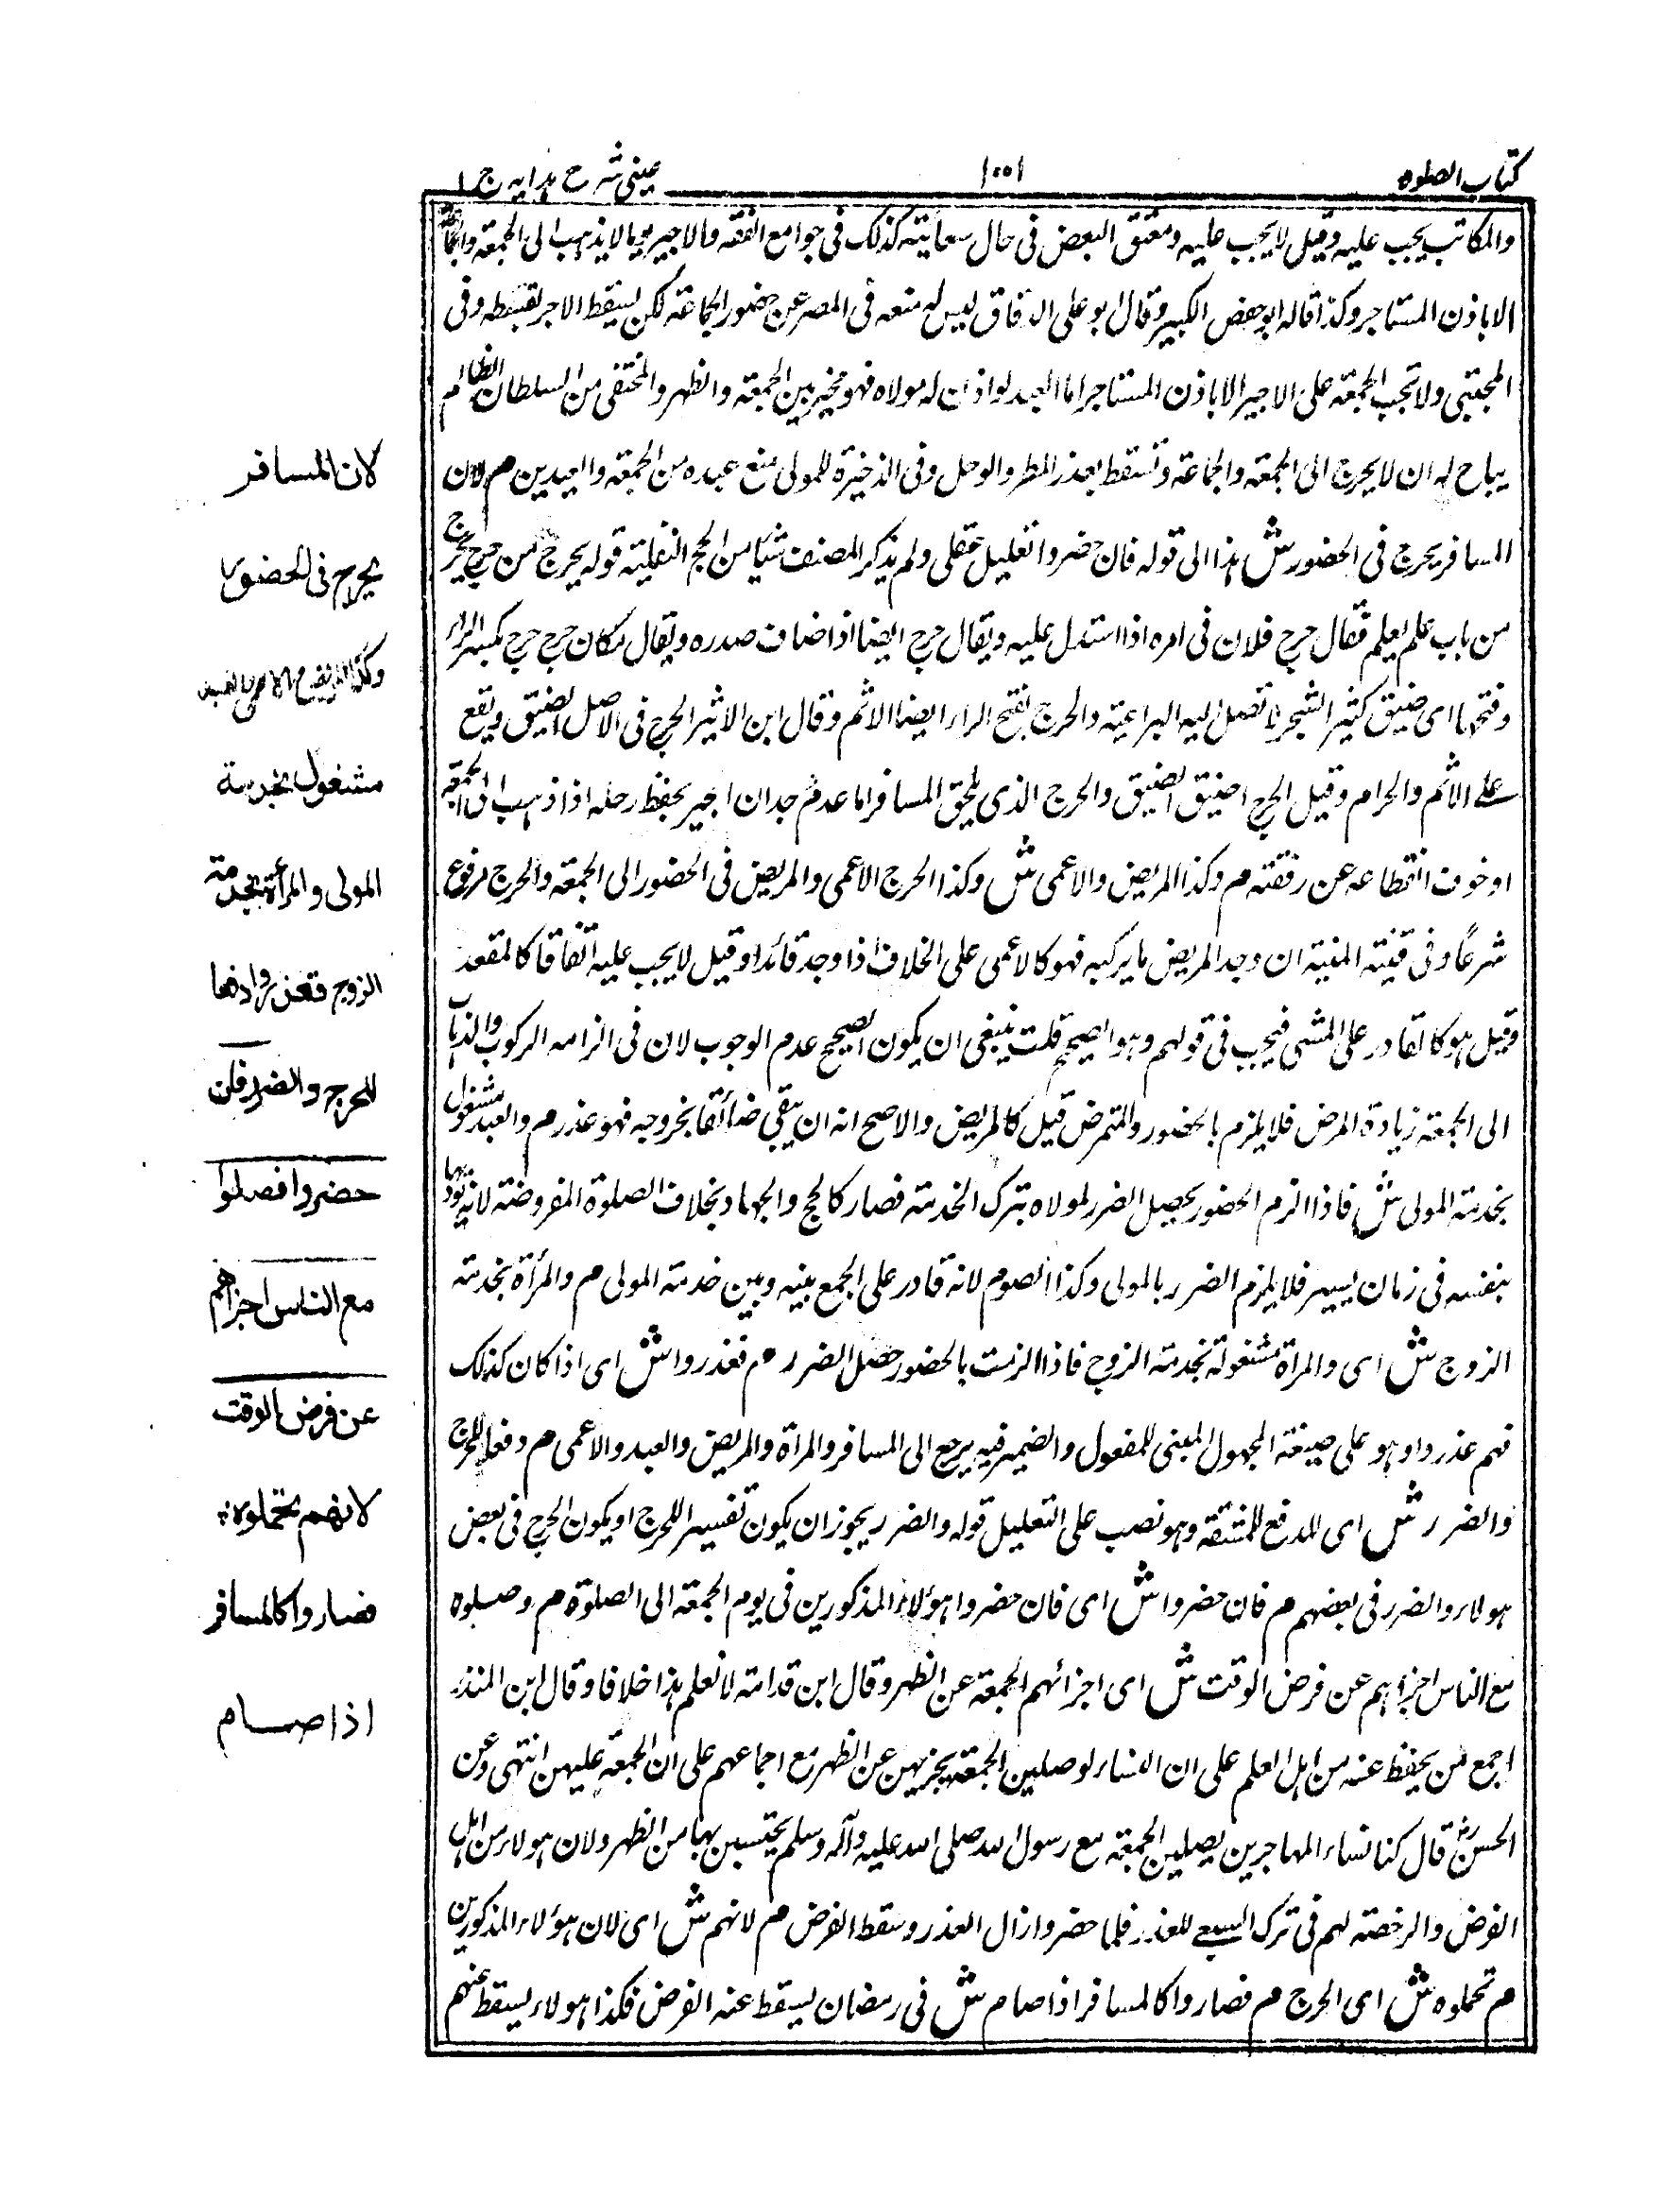 كتاب الصلوة
١٠٠١
عينى شرح هدايه ج ١
والمكاتب يجب عليه وقيل لا يجب عليه ومعتق البعض فى حال سعايته كذلك فى جوامع الفقه والاجير يوما لا يذهب الى الجمعة والجماعة
الا باذن المستاجر وكذا قاله ابو حفص الكبير وقال ابو على الدقاق ليس له منعه فى المصر عن حضور الجماعة لكن يسقط الاجر بقسطه وفى
المجتبى ولا تجب الجمعة على الاجير الا باذن المستاجر اما العبد لو اذن له مولاه فهو مخير بين الجمعة والظهر والمختفى من السلطان الظالم
يباح له ان لا يخرج الى الجمعة والجماعة وتسقط بعذر المطر والوحل وفى الذخيرة للمولى منع عبده من الجمعة والعيدين م لان
المسافر يحرج فى الحضور ش هذا الى قوله فان حضروا تعليل عقلى ولم يذكر المصنف شيئا من الحجج النقلية قوله يحرج من حرج يحرج
من باب علم يعلم فقال حرج فلان فى امره اذا استدل عليه ويقال حرج ايضا اذا ضاف صدره ويقال مكان حرج حرج بكسر الراء
وفتحها اى ضيق كثير الشجر لا تصل اليه الراعية والحرج بفتح الراء ايضا الاثم وقال ابن الاثير الحرج فى الاصل الضيق ويقع
على الاثم والحرام وقيل الحرج اضيق الضيق والحرج الذى يلحق المسافر اما عدم وجدان اجير يحفظ رحله اذا ذهب الى الجمعة
او خوف انقطاعه عن رفقته م وكذا المريض والاعمى ش وكذا الحرج الاعمى والمريض فى الحضور الى الجمعة والحرج مرفوع
شرعًا وفى قنية المنية ان وجد المريض ما يركبه فهو كالاعمى على الخلاف اذا وجد قائدا وقيل لا يجب عليه اتفاقا كالمقعد
وقيل هو كالقادر على المشى فيجب فى قولهم وهو الصحيح قلت ينبغى ان يكون الصحيح عدم الوجوب لان فى الزامه الركوب والذهاب
الى الجمعة زيادة المرض فلا يلزم بالحضور والممرض قيل كالمريض والاصح انه ان يبقى ضائعا بخروجه فهو عذر م والعبد مشغول
بخدمة المولى ش فاذا الزم الحضور يحصل الضرر لمولاه بترك الخدمة فصار كالحج والجهاد بخلاف الصلوة المفروضة لانه يؤديها
بنفسه فى زمان يسير فلا يلزم الضرر بالمولى وكذا الصوم لانه قادر على الجمع بينه وبين خدمة المولى م والمرأة بخدمة
الزوج ش اى والمرأة مشغولة بخدمة الزوج فاذا الزمت بالحضور حصل الضرر م فعذروا ش اى اذا كان كذلك
فهم عذروا وهو على صيغة المجهول المبنى للمفعول والضمير فيه يرجع الى المسافر والمرأة والمريض والعبد والاعمى م دفعا للحرج
والضرر ش اى للدفع للمشقة وهو نصب على التعليل قوله والضرر يجوز ان يكون تفسيرا للحرج او يكون الحرج فى بعض
هولاء والضرر فى بعضهم م فان حضروا ش اى فان حضروا هؤلاء المذكورين فى يوم الجمعة الى الصلوة م وصلوه
مع الناس اجزاهم عن فرض الوقت ش اى اجزائهم الجمعة عن الظهر وقال ابن قدامة لا نعلم هذا خلافا وقال ابن المنذر
اجمع من يحفظ عنه من اهل العلم على ان النساء لو صلين الجمعة يجزيهن عن الظهر مع اجماعهم على ان الجمعة عليهن انتهى وعن
الحسن رض قال كنا نساء المهاجرين يصلين الجمعة مع رسول الله صلى الله عليه وآله وسلم يحتسبن بها من الظهر ولان هولاء من اهل
الفرض والرخصة لهم فى ترك السعى للعذر فلما حضروا زال العذر وسقط الفرض م لانهم ش اى لان هؤلاء المذكورين
م تحملوه ش اى الحرج م فصاروا كالمسافر اذا صام ش فى رمضان يسقط عنه الفرض فكذا هولاء يسقط عنهم
لان المسافر
يحرج فى الحضور
وكذا المريض والاعمى والعبد
مشغول بخدمة
المولى والمرأة بخدمة
الزوج فعذروا دفعا
للحرج والضرر فان
حضروا فصلوا
مع الناس اجزاهم
عن فرض الوقت
لانهم تحملوه
فصاروا كالمسافر
اذا صام